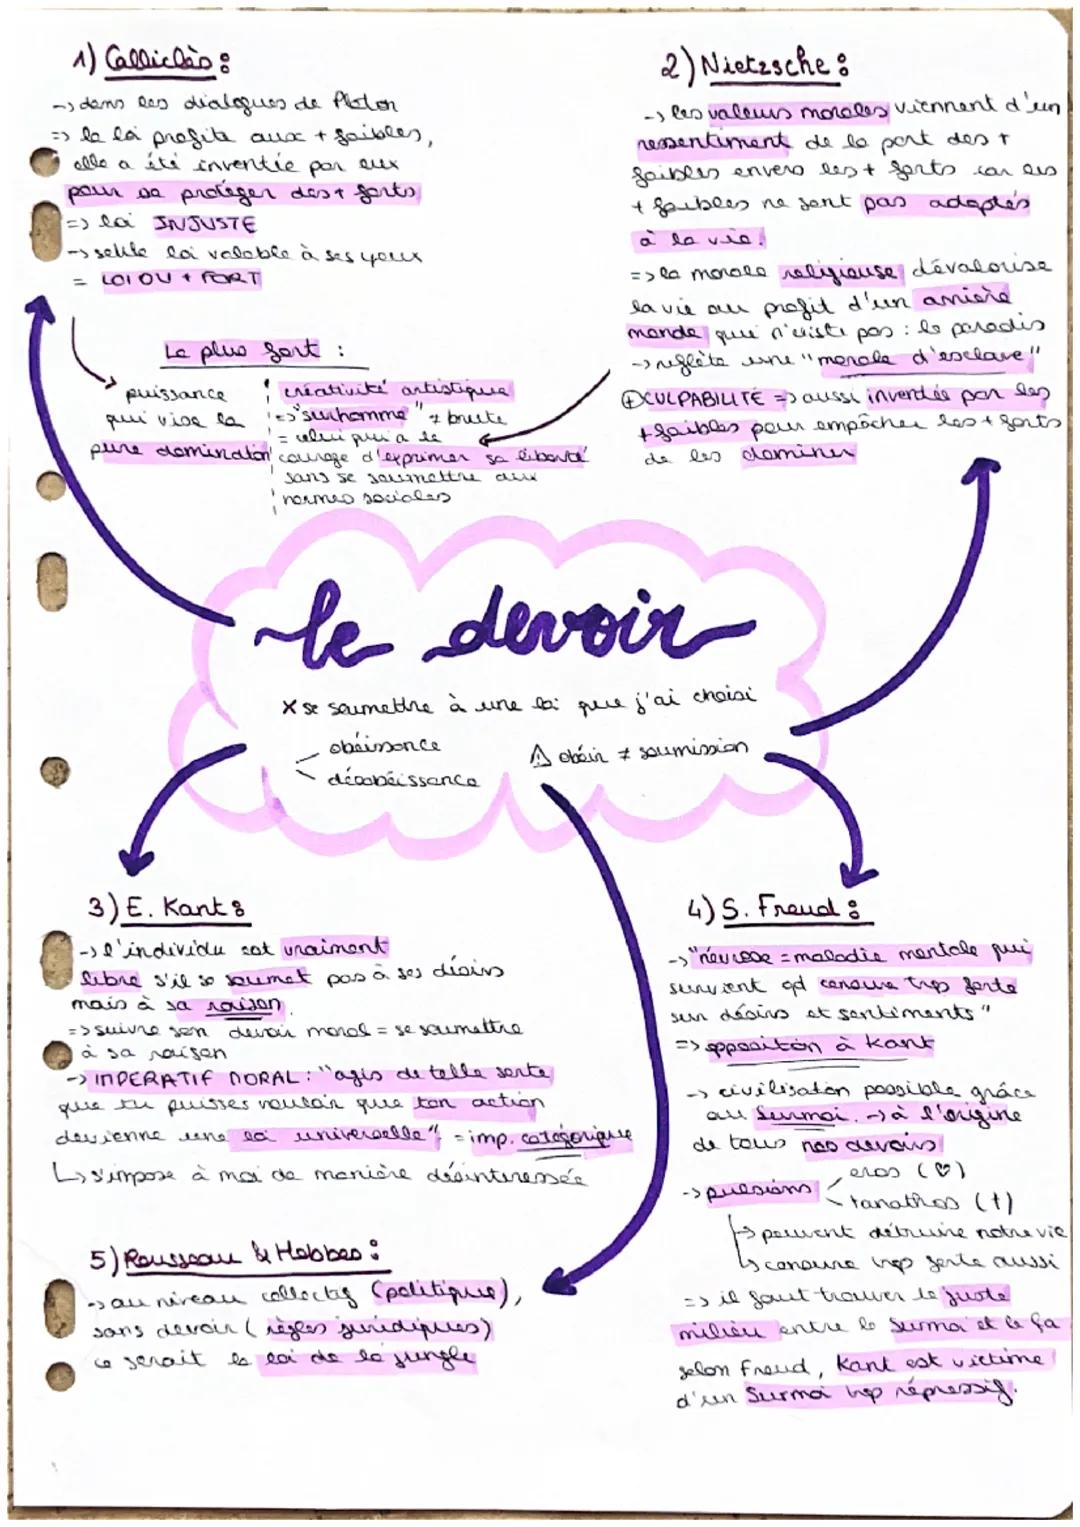 1) Calliclès :
-> dans les dialogues de Platon
=> la loi profite aux + faibles,
elle a été inventée par eux
pour se protéger des + forts
=> loi INJUSTE
-> seule loi valable à ses yeux
= LOI DU + FORT
Le plus fort :
puissance
qui vise la
pure domination
créativité artistique
=> "surhomme" ≠ brute
= celui qui a le
courage d'exprimer sa liberté
sans se soumettre aux
normes sociales
2) Nietzsche :
-> les valeurs morales viennent d'un
ressentiment de la part des +
faibles envers les + forts car les
+ faibles ne sont pas adaptés
à la vie.
=> la morale religieuse dévalorise
la vie au profit d'un arrière
monde qui n'existe pas : le paradis
-> reflète une "morale d'esclave"
⊕ CULPABILITÉ => aussi inventée par les
+ faibles pour empêcher les + forts
de les dominer
le devoir
× se soumettre à une loi que j'ai choisi
obéissance
désobéissance
⚠ obéir ≠ soumission
3) E. Kant :
-> l'individu est vraiment
libre s'il se soumet pas à ses désirs
mais à sa raison.
=> suivre son devoir moral = se soumettre
à sa raison
-> IMPERATIF MORAL : "agis de telle sorte
que tu puisses vouloir que ton action
devienne une loi universelle" = imp. catégorique
↳ s'impose à moi de manière désintéressée
4) S. Freud :
-> "névrose = maladie mentale qui
survient qd censure trop forte
sur désirs et sentiments"
=> opposition à Kant
-> civilisation possible grâce
au Surmoi. -> à l'origine
de tous nos devoirs
-> pulsions
eros (♡)
tanathos (†)
↳ peuvent détruire notre vie
↳ censure trop forte aussi
=> il faut trouver le juste
milieu entre le Surmoi et le ça
selon Freud, Kant est victime
d'un Surmoi trop répressif.
5) Rousseau & Hobbes :
-> au niveau collectif (politique),
sans devoir (règles juridiques)
ce serait la loi de la jungle